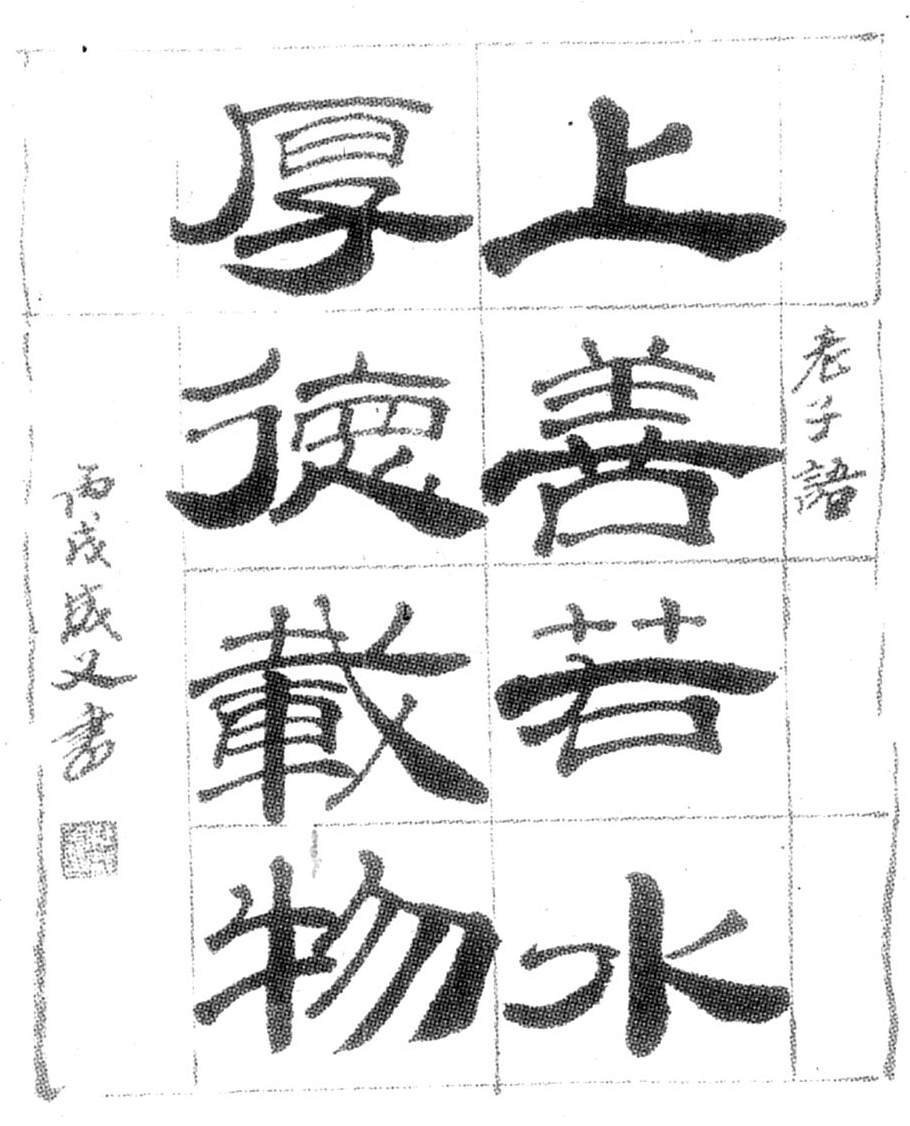 老子語
上善若水
厚德載物
丙戌成义書